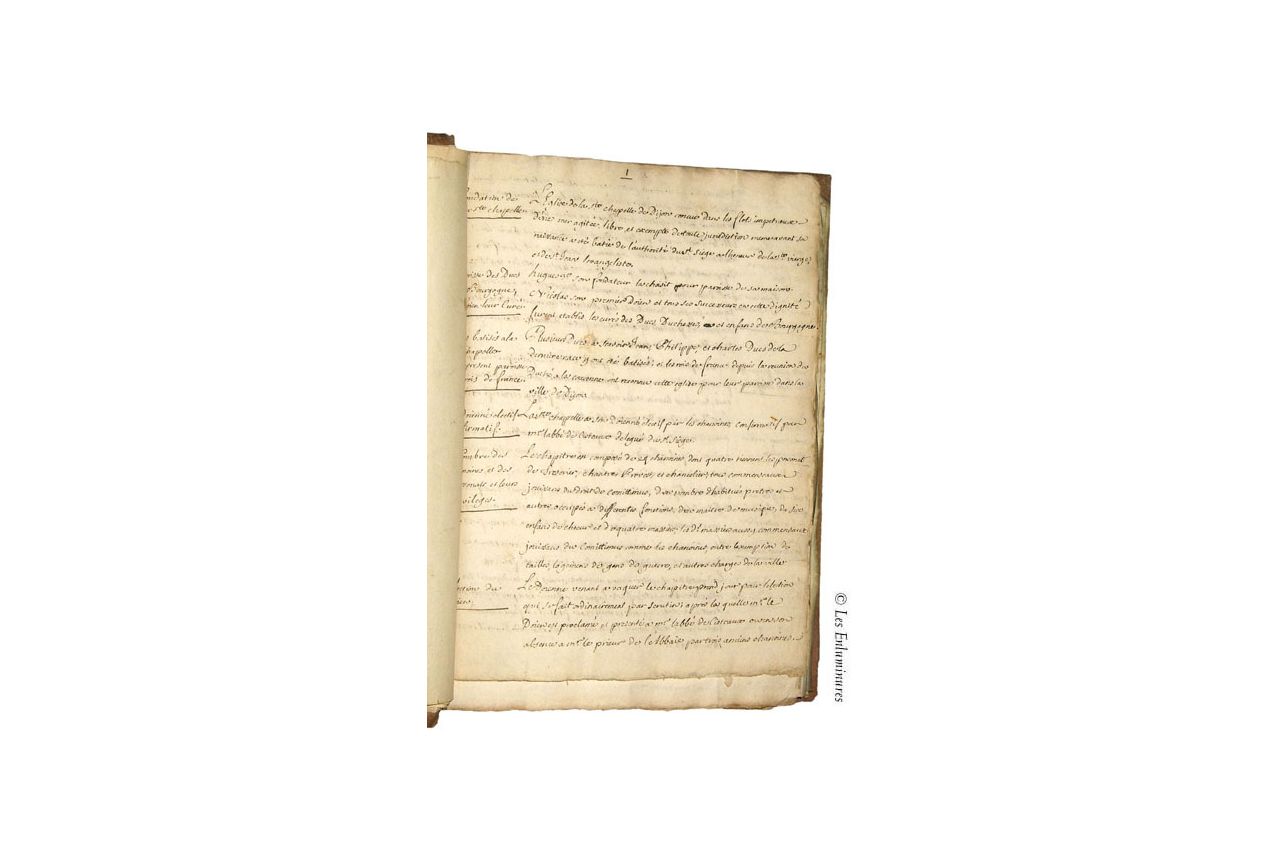 1
ndation de
ste chapelle
L'Eglise de la ste chapelle de Dijon concue dans les flots impetueux
d'une mer agitée, libre et exempte de toute jurisdiction mesme avant sa
naissance a esté batie de l'authorité du st siege a l'honneur de la ste vierge
et de st Jean Evangeliste.
des Ducs
Bourgogne,
leur Curé
hugues 3e son fondateur la choisit pour paroisse de sa maison
Nicolas son premier Doien et tous ses successeurs en cette dignité
furent etablis les curés des Ducs, Duchesses, et enfans de Bourgogne
batisés a la
chapelle
present paroisse
rois de france
Plusieurs Ducs a scavoir Jean, Philippe, et charles Ducs de la
derniere race y ont esté batisés; et les rois de france depuis la reunion du
Duché a la couronne ont reconnu cette eglise pour leur paroisse dans la
ville de Dijon.
electif
firmatif.
La ste chapelle a son Doienné electif par les chanoines, confirmatif par
mr l'abbé de Citeaux delegué du st siege.
mbre des
noines, et des
et leurs
vileges.
Le chapitre est composé de 24 chanoines, dont quatre tiennent les
de Tresorier, chantre Prevost, et chancelier, tous commensaux
jouissans du droit de comittimus, d'un nombre d'habitués pretres et
autres occupés a differentes fonctions, d'un maitre de musique, de six
enfans de choeur et de quatre aussy commensaux
jouissans du Comittimus comme les chanoines, outre l'exemption de
tailles, logemens de gens de guerre, et autres charges de la ville
ction du
Le Doienné venant a vaquer le chapitre prend jour pour l'election
qui se fait ordinairement par scrutin; apres laquelle mr le
Doien est proclamé et presenté a mr l'abbé de Citeaux ou en son
absence a mr le prieur de l'Abbaie, par trois anciens chanoines.
© Les Enluminures